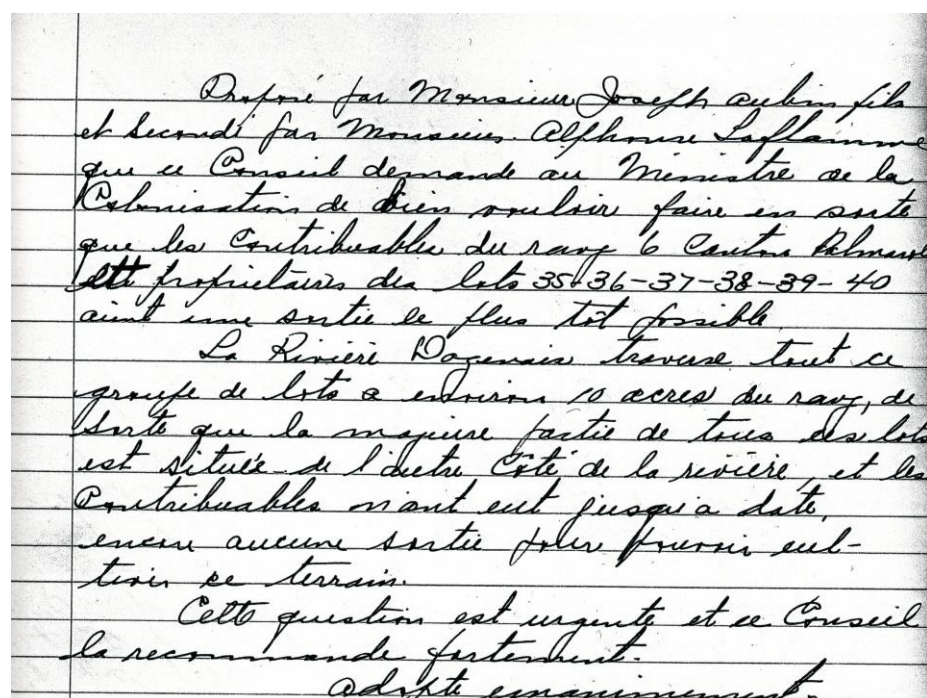 Proposé par Monsieur Joseph Aubin fils
et Secondé par Monsieur Alphonse Laflamme
que ce Conseil demande au Ministre de la
Colonisation de bien vouloir faire en sorte
que les Contribuables du rang 6 Canton Palmarol
propriétaires des lots 35-36-37-38-39-40
aient une sortie le plus tôt possible.
La Rivière Dagenais traverse tout ce
groupe de lots a environ 10 acres du rang, de
sorte que la majeure partie de tous ces lots
est située de l'autre côté de la rivière, et les
Contribuables n'ont eut jusqu'a date,
encore aucune sortie pour pouvoir cul-
tiver ce terrain.
Cette question est urgente et ce Conseil
la recommande fortement.
Adopté unanimement.